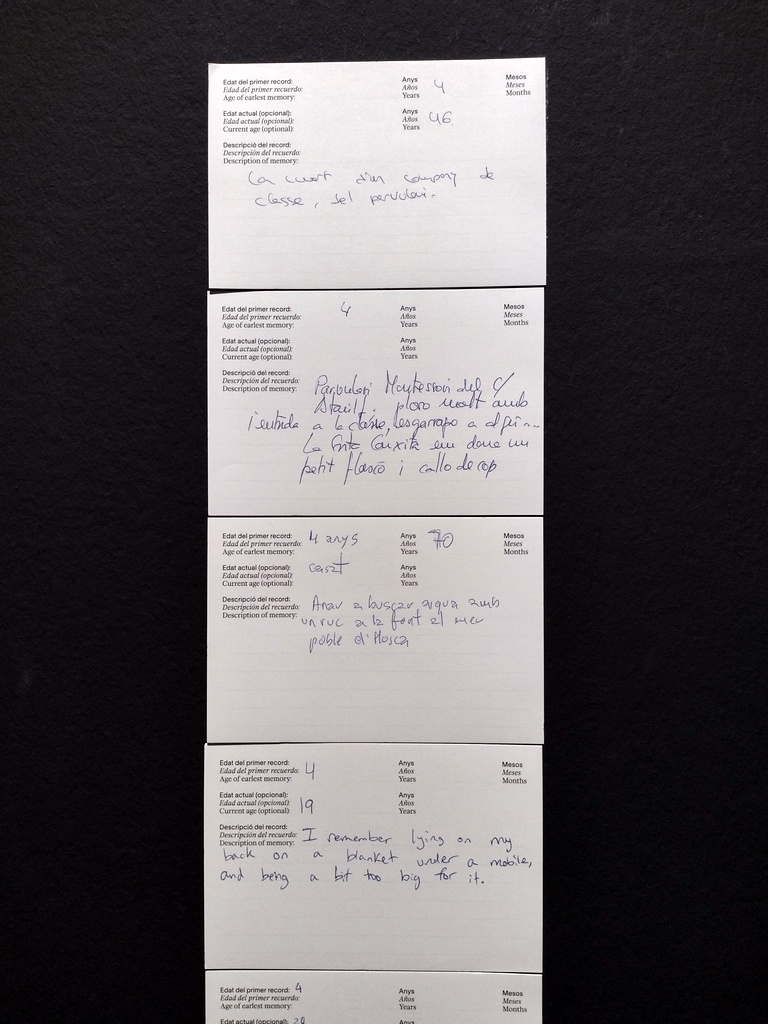 Edat del primer record: Anys 4 Mesos
Edad del primer recuerdo: Años Meses
Age of earlest memory: Years Months
Edat actual (opcional): Anys 46
Edad actual (opcional): Años
Current age (optional): Years
Descripció del record:
Descripción del recuerdo:
Description of memory:
La mort d'un company de
classe, del parvulari.
Edat del primer record: 4 Anys Mesos
Edad del primer recuerdo: Años Meses
Age of earlest memory: Years Months
Edat actual (opcional): Anys
Edad actual (opcional): Años
Current age (optional): Years
Descripció del record:
Descripción del recuerdo:
Description of memory:
Parvulari Montessori del C/
ploro molt amb
l'entrada a la classe, esgarrapo a
La Srta Conxita em dona un
petit flascó i callo de cop
Edat del primer record: 4 anys Anys 70 Mesos
Edad del primer recuerdo: Años Meses
Age of earlest memory: Years Months
Edat actual (opcional): Anys
Edad actual (opcional): Años
Current age (optional): Years
Descripció del record:
Descripción del recuerdo:
Description of memory:
Anar a buscar aigua amb
un ruc a la font al meu
poble d'Huesca
Edat del primer record: 4 Anys Mesos
Edad del primer recuerdo: Años Meses
Age of earlest memory: Years Months
Edat actual (opcional): Anys
Edad actual (opcional): 19 Años
Current age (optional): Years
Descripció del record:
Descripción del recuerdo:
Description of memory:
I remember lying on my
back on a blanket under a mobile,
and being a bit too big for it.
Edat del primer record: 4 Anys Mesos
Edad del primer recuerdo: Años Meses
Age of earlest memory: Years Months
Edat actual (opcional): 20 Anys